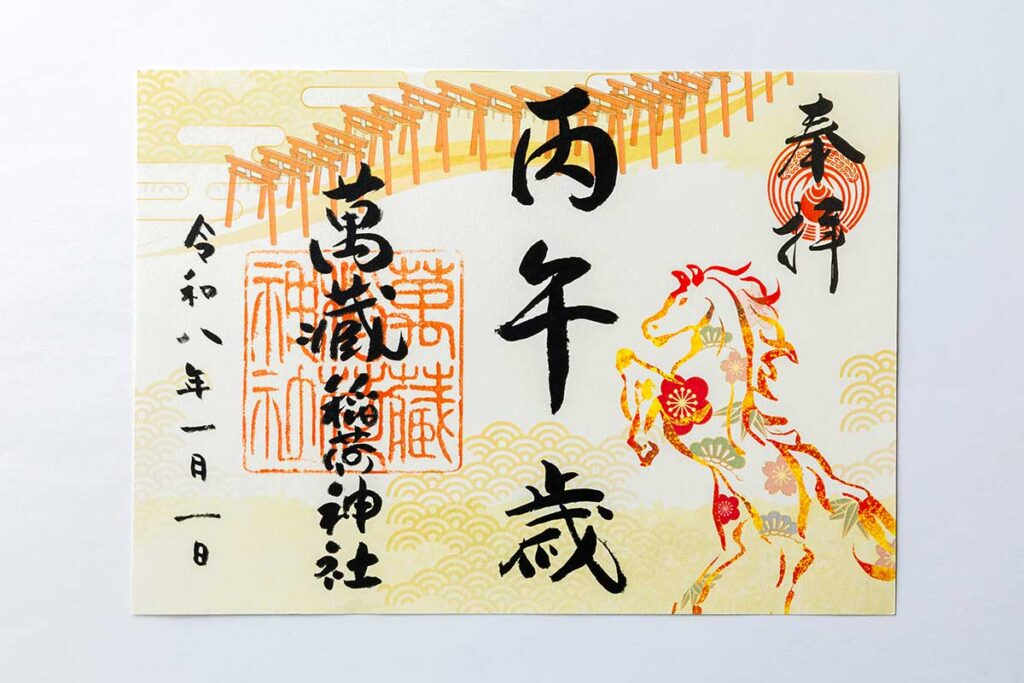 奉拝
丙午歳
萬藏稲荷神社
萬藏稲荷神社
令和八年一月一日